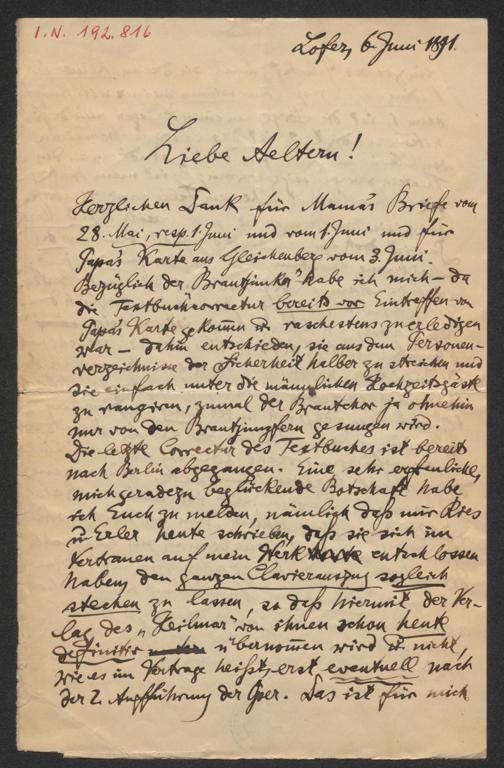 I.N. 192.816
Lofer, 6. Juni 1891.
Liebe Aeltern!
Herzlichen Dank für Mama's Briefe vom
28. Mai, resp. 1. Juni und vom 1. Juni und für
Papa's Karte aus Gleichenberg vom 3. Juni.
Bezüglich der "Brautjunker" habe ich mich – da
die Textbuchcorrectur bereits vor Eintreffen von
Papa's Karte gekommen u. raschestens zu erledigen
war – dahin entschieden, sie aus dem Personen-
verzeichnisse der Sicherheit halber zu streichen und
sie einfach unter die männlichen Hochzeitsgäste
zu rangiren, zumal der Brautchor ja ohnehin
nur von den Brautjungfern gesungen wird.
Die letzte Correctur des Textbuches ist bereits
nach Berlin abgegangen. Eine sehr erfreuliche,
mich geradezu beglückende Botschaft habe
ich Euch zu melden, nämlich daß mir Ries
u. Erler heute schrieben, daß sie sich im
Vertrauen auf mein Werk entschlossen
haben, den ganzen Clavierauszug sogleich
stechen zu lassen, so daß hiermit der Ver-
lag des "Heilmar" von ihnen schon heute
definitiv übernommen wird u. nicht,
wie es im Vertrage heißt, erst eventuell nach
der 2. Aufführung der Oper. Das ist für mich